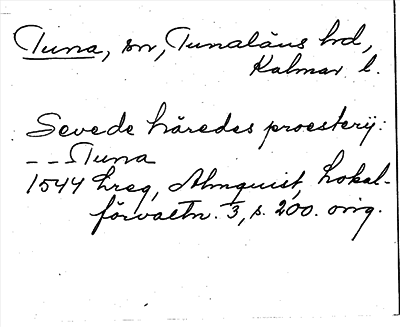 Tuna, sn, Tunaläns hd,
Kalmar l.
Sevede häredes proesterij:
-- Tuna
1544 hreg, Almquist, Lokal-
förvaltn. 3, s. 200. orig.